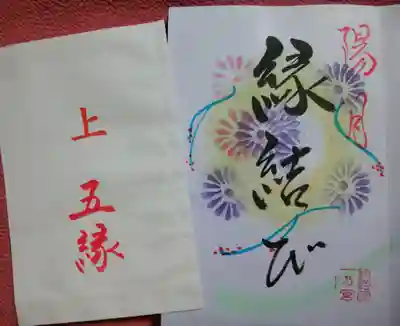 上
五縁
陽月
縁結び